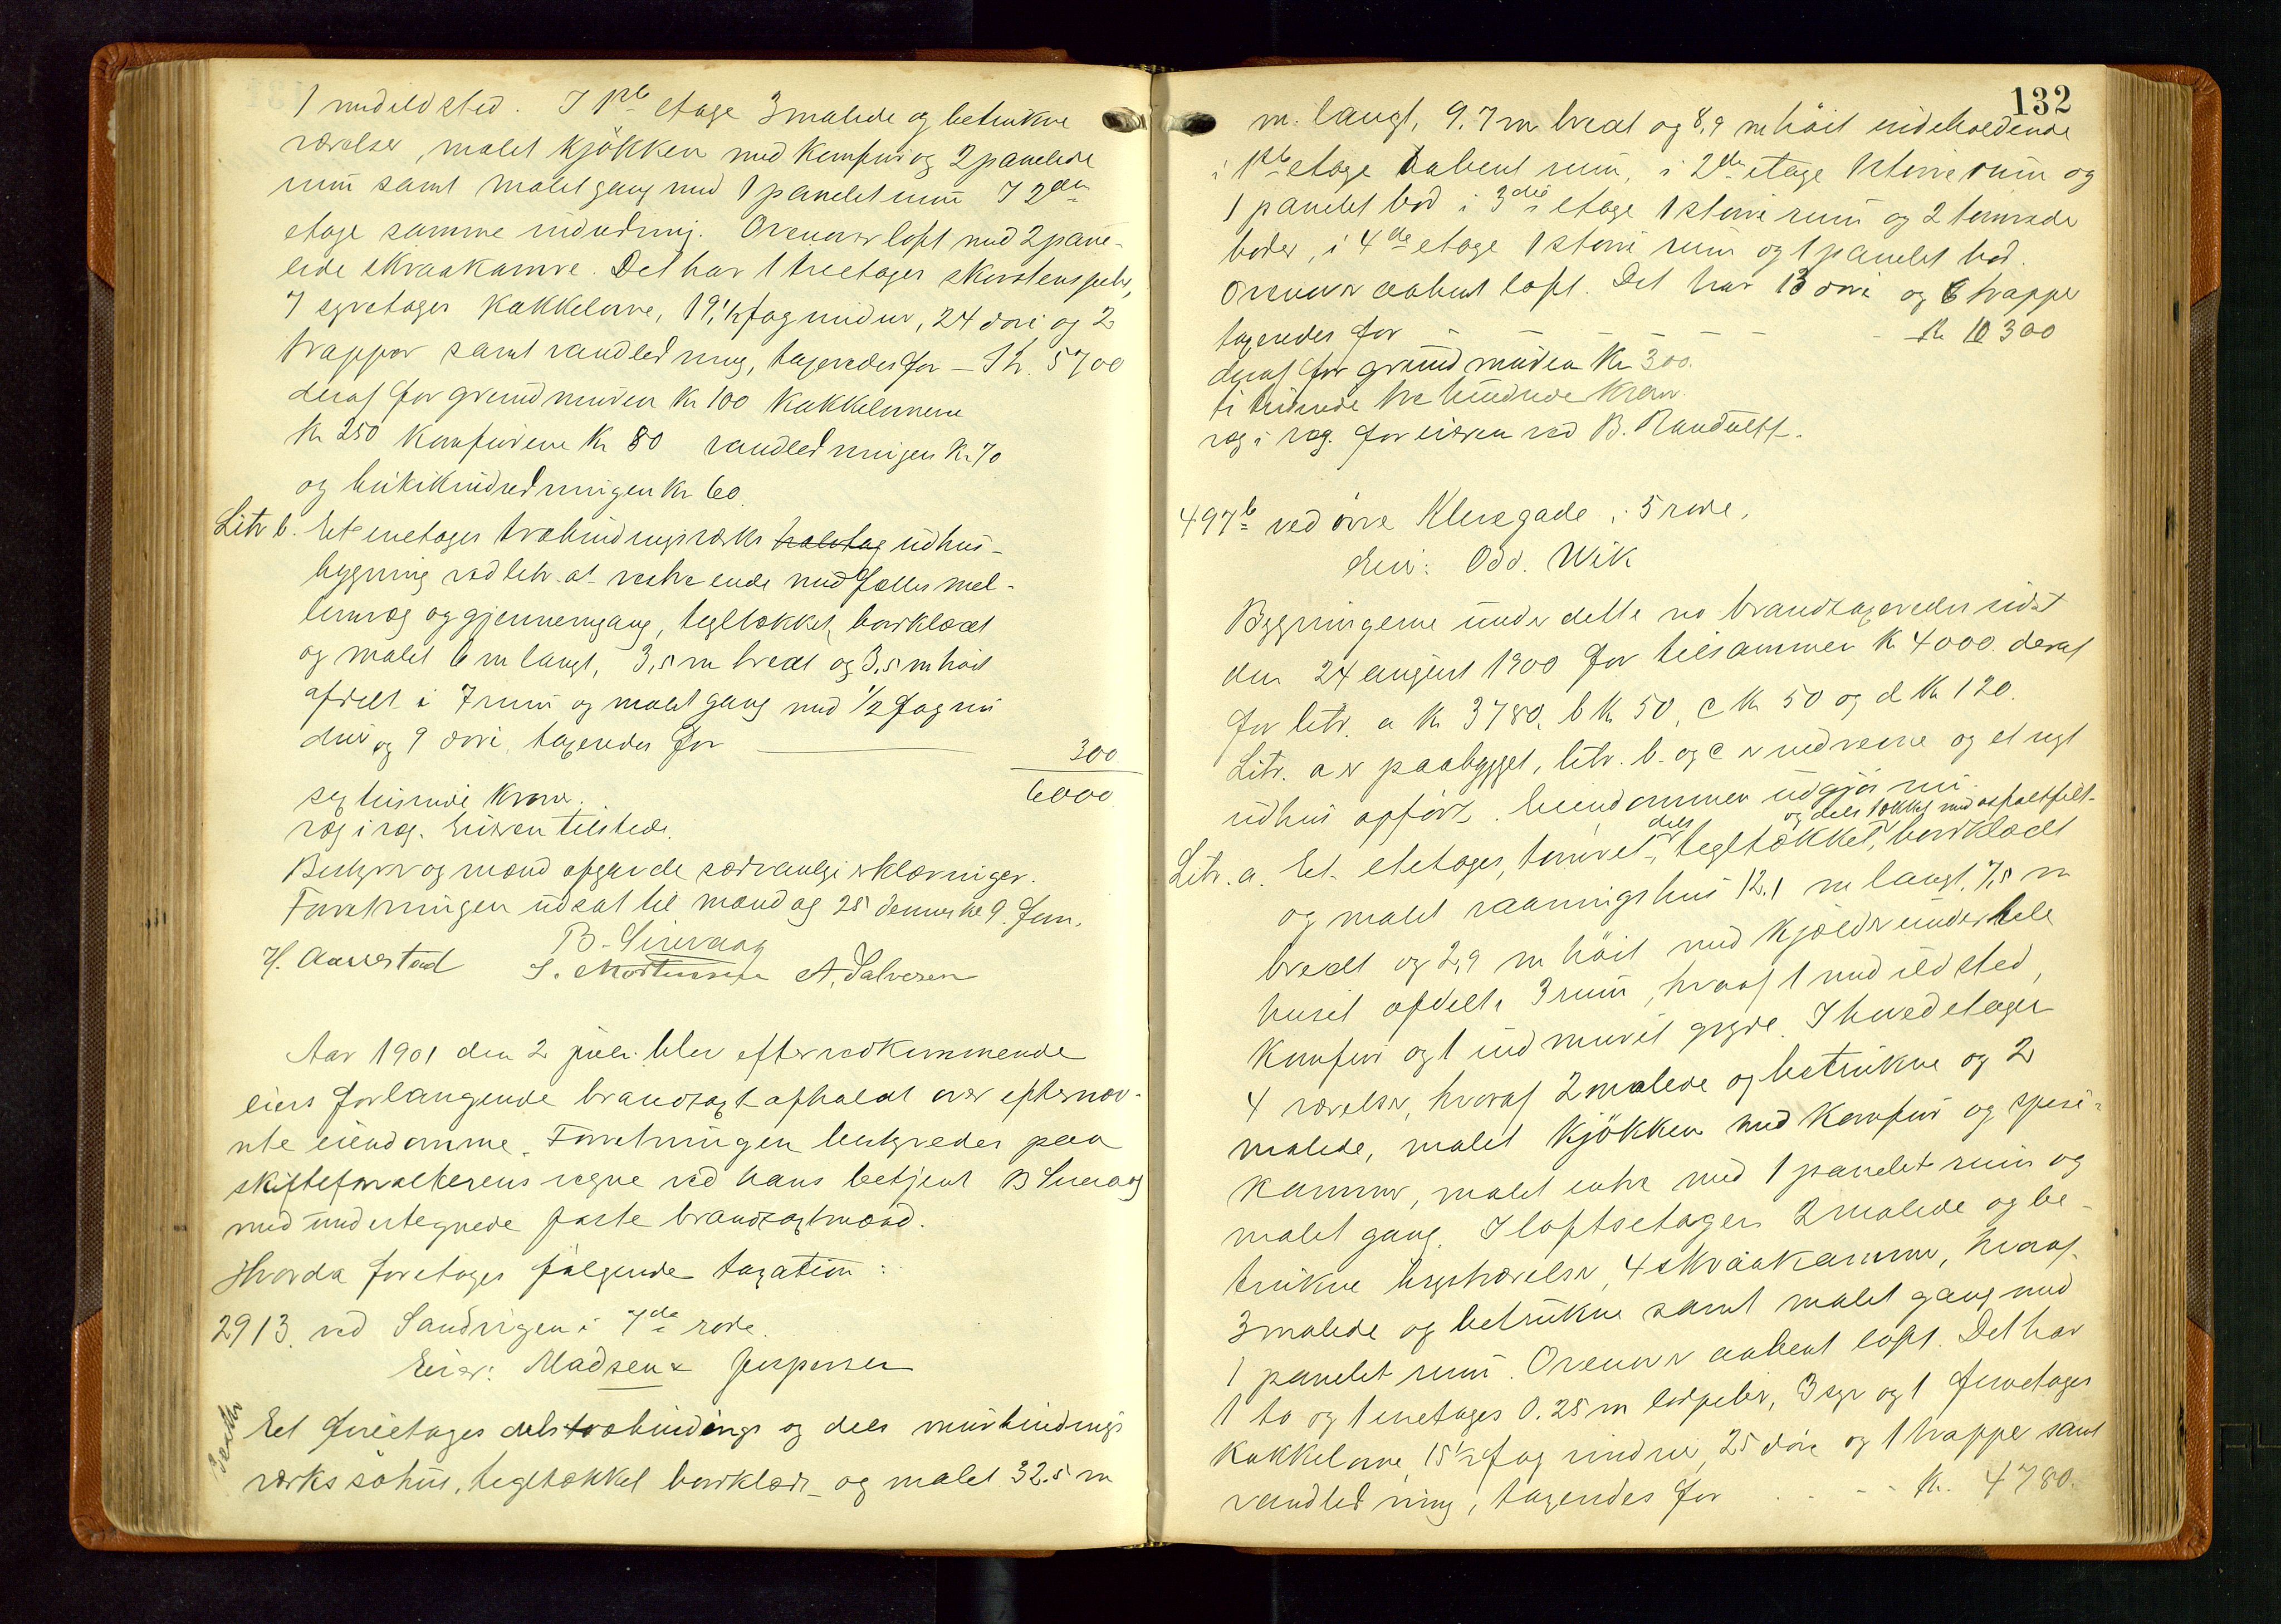 1 med ildsted. I 1ste etage 3 malede og betrukne
værelser, malet kjökken med komfur og 2 panelede
rum samt malet gang med 1 panelet rum I 2den
etage samme indredning. Ovenover loft med 2 pane-
lede skraakamre. Det har 1 treetages skorstenspibe,
7 syvetages kakkelovne, 19 1/2 fag vinduer, 24 döre og 2
trapper samt vandledning, taxeredes for - Kr. 5700
deraf for grundmuren Kr 100 kakkelovnene
Kr 250 komfurene Kr 80 vandledningen Kr 70
og butikindredningen Kr 60.
Litr b. Et enetages træbindingsværks halvtag udhus-
bygning ved litr. a vestre ende med fælles mel-
lemvæg og gjennemgang, tegltækket, bordklædt
og malet 6 m langt, 3,5 m bredt og 3,5 m höit
afdelt i 7 rum og malet gang med 1/2 fag vin
duer og 9 döre, taxeredes for 300
6000
sex tusinde kroner.
væg i væg. Eieren tilstede.
Bestyrer og mænd afgav de sædvanlige erklæringer.
Forretningen udsat til mandag 25 dennes kl 9 Fm.
H. Aarrestad B. Sirevaag
S. Mortensen A. Salvesen
Aar 1901 den 2 juli blev efter vedkommende
eiers forlangende brandtaxt afholdt over efternæv-
nte eiendomme. Forretningen bestyredes paa
skifteforvalterens vegne ved hans betjent B Sirevaag
med undertegnede faste brandtaxtmænd.
Hvorda foretoges fölgende taxation:
2913. ved Sandvigen i 7de rode.
Eier: Madsen & Jespersen
Et fireetages dels træbindings og dels murbindings
værks söhus, tegltækket bordklædt og malet 32.5 m
132
m. langt, 9.7 m bredt og 8,9 m höit indeholdende
i 1ste etage aabent rum, i 2den etage 1 större rum og
1 panelet bod i 3die etage 1 större rum og 2 tömrede
boder, i 4de etage 1 större rum og 1 panelet bod.
Ovenover aabent loft. Det har 13 döre og 6 trapper
taxeredes for - - - - - - - Kr 10300
deraf for grundmuren Kr 300.
ti tusinde tre hundrede kroner.
væg i væg. for eieren ved B. Randulff.
497b ved övre Klevegade i 5 rode.
Eier: Odd. Wik
Bygningerne under dette no brandtaxeredes sidst
den 24 august 1900 for tilsammen Kr 4000. deraf
for litr. a Kr 3780, b Kr 50, c Kr 50 og d Kr 120.
Litr. a er paabygget, litr. b. og c er nedrevne og et nyt
udhus opfört. Eiendommen udgjör nu:
dels og dels tækket med asfaltfilt-
Litr. a. Et etetages, tömret, tegltækket, bordklædt
og malet vaaningshus 12,1 m langt, 7,5 m
bredt og 2,9 m höit med kjælder under hele
huset afdelt i 3 rum, hvoraf 1 med ildsted,
komfur og 1 indmuret gryde. I hovedetagen
4 værelser, hvoraf 2 malede og betrukne og 2
malede, malet kjökken med komfur og spise-
kammer, malet entre med 1 panelet rum og
malet gang. I loftsetagen 2 malede og be-
trukne kvistværelser, 4 skraakammer, hvoraf
3 malede og betrukne samt malet gang med
1 panelet rum. Ovenover aabent loft. Det har
1 to og 1 enetages 0.25 m lodpibe, 3 syv og 1 femetages
kakkelovne, 15 1/2 fag vinduer, 25 döre og 1 trappe samt
vandledning, taxeredes for - - - - Kr. 4780.